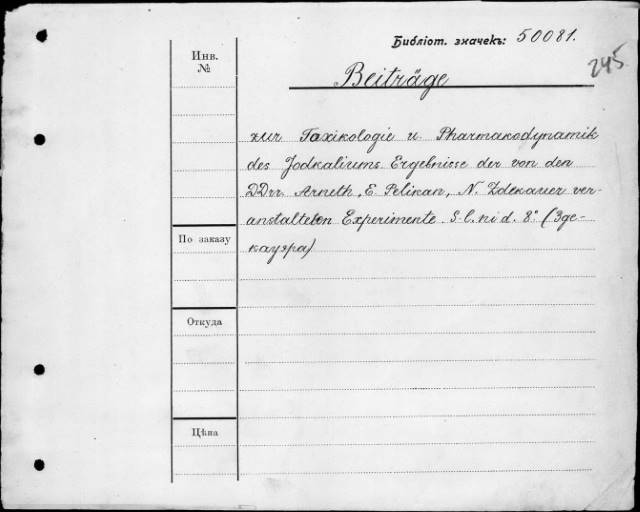 Библіот. значекъ: 50081.
245
Инв.
№
Beiträge
zur Taxikologie u. Pharmakodynamik
des Jodkaliums Ergebnisse der von den
DDrr. Arneth, E. Pelikan, N. Zdekauer ver-
anstalteten Experimente. S. l. ni d. 8° (Зде-
кауэра)
По заказу
Откуда
Цѣна